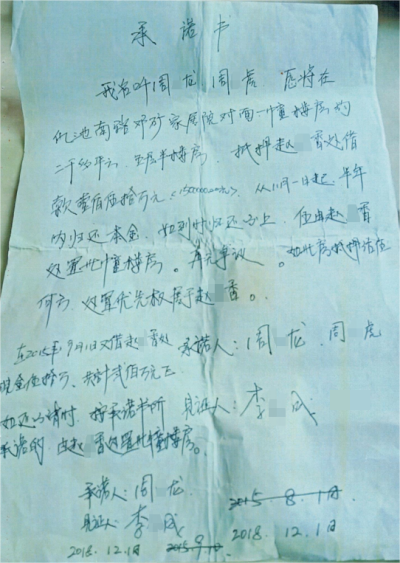 承诺书
我名叫周龙周虎 愿将在
仁池南路 家居院对面一幢楼房约
二千多平方 五层半楼房 抵押赵 香处借
款壹佰伍拾万元(1500000元) 从11月1日起半年
内归还本金 如到时归还不上 任由赵 香
处置此幢楼房。再无争议。如此房抵押给任
何方 处置优先权属于赵 香。
在2015年9月1日又借赵 香处
现金伍拾万 共计贰佰万元正
如还不清时 按承诺书所
承诺的 由赵 香处置此幢楼房。
承诺人:周 龙 周 虎
见证人:李 成
2015.8.1日
2018.12.1日
承诺人:周 龙
见证人:李 成
2018.12.1日